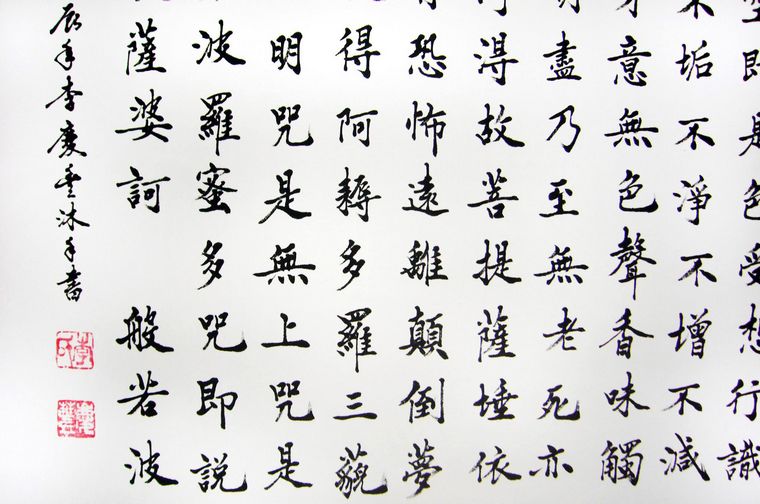 即是色受想行識
不垢不淨不增不減
意無色聲香味觸
盡乃至無老死亦
得故菩提薩埵依
恐怖遠離顛倒夢
得阿耨多羅三藐
明咒是無上咒是
波羅蜜多咒即說
薩婆訶 般若波
辰年李慶雲沐手書